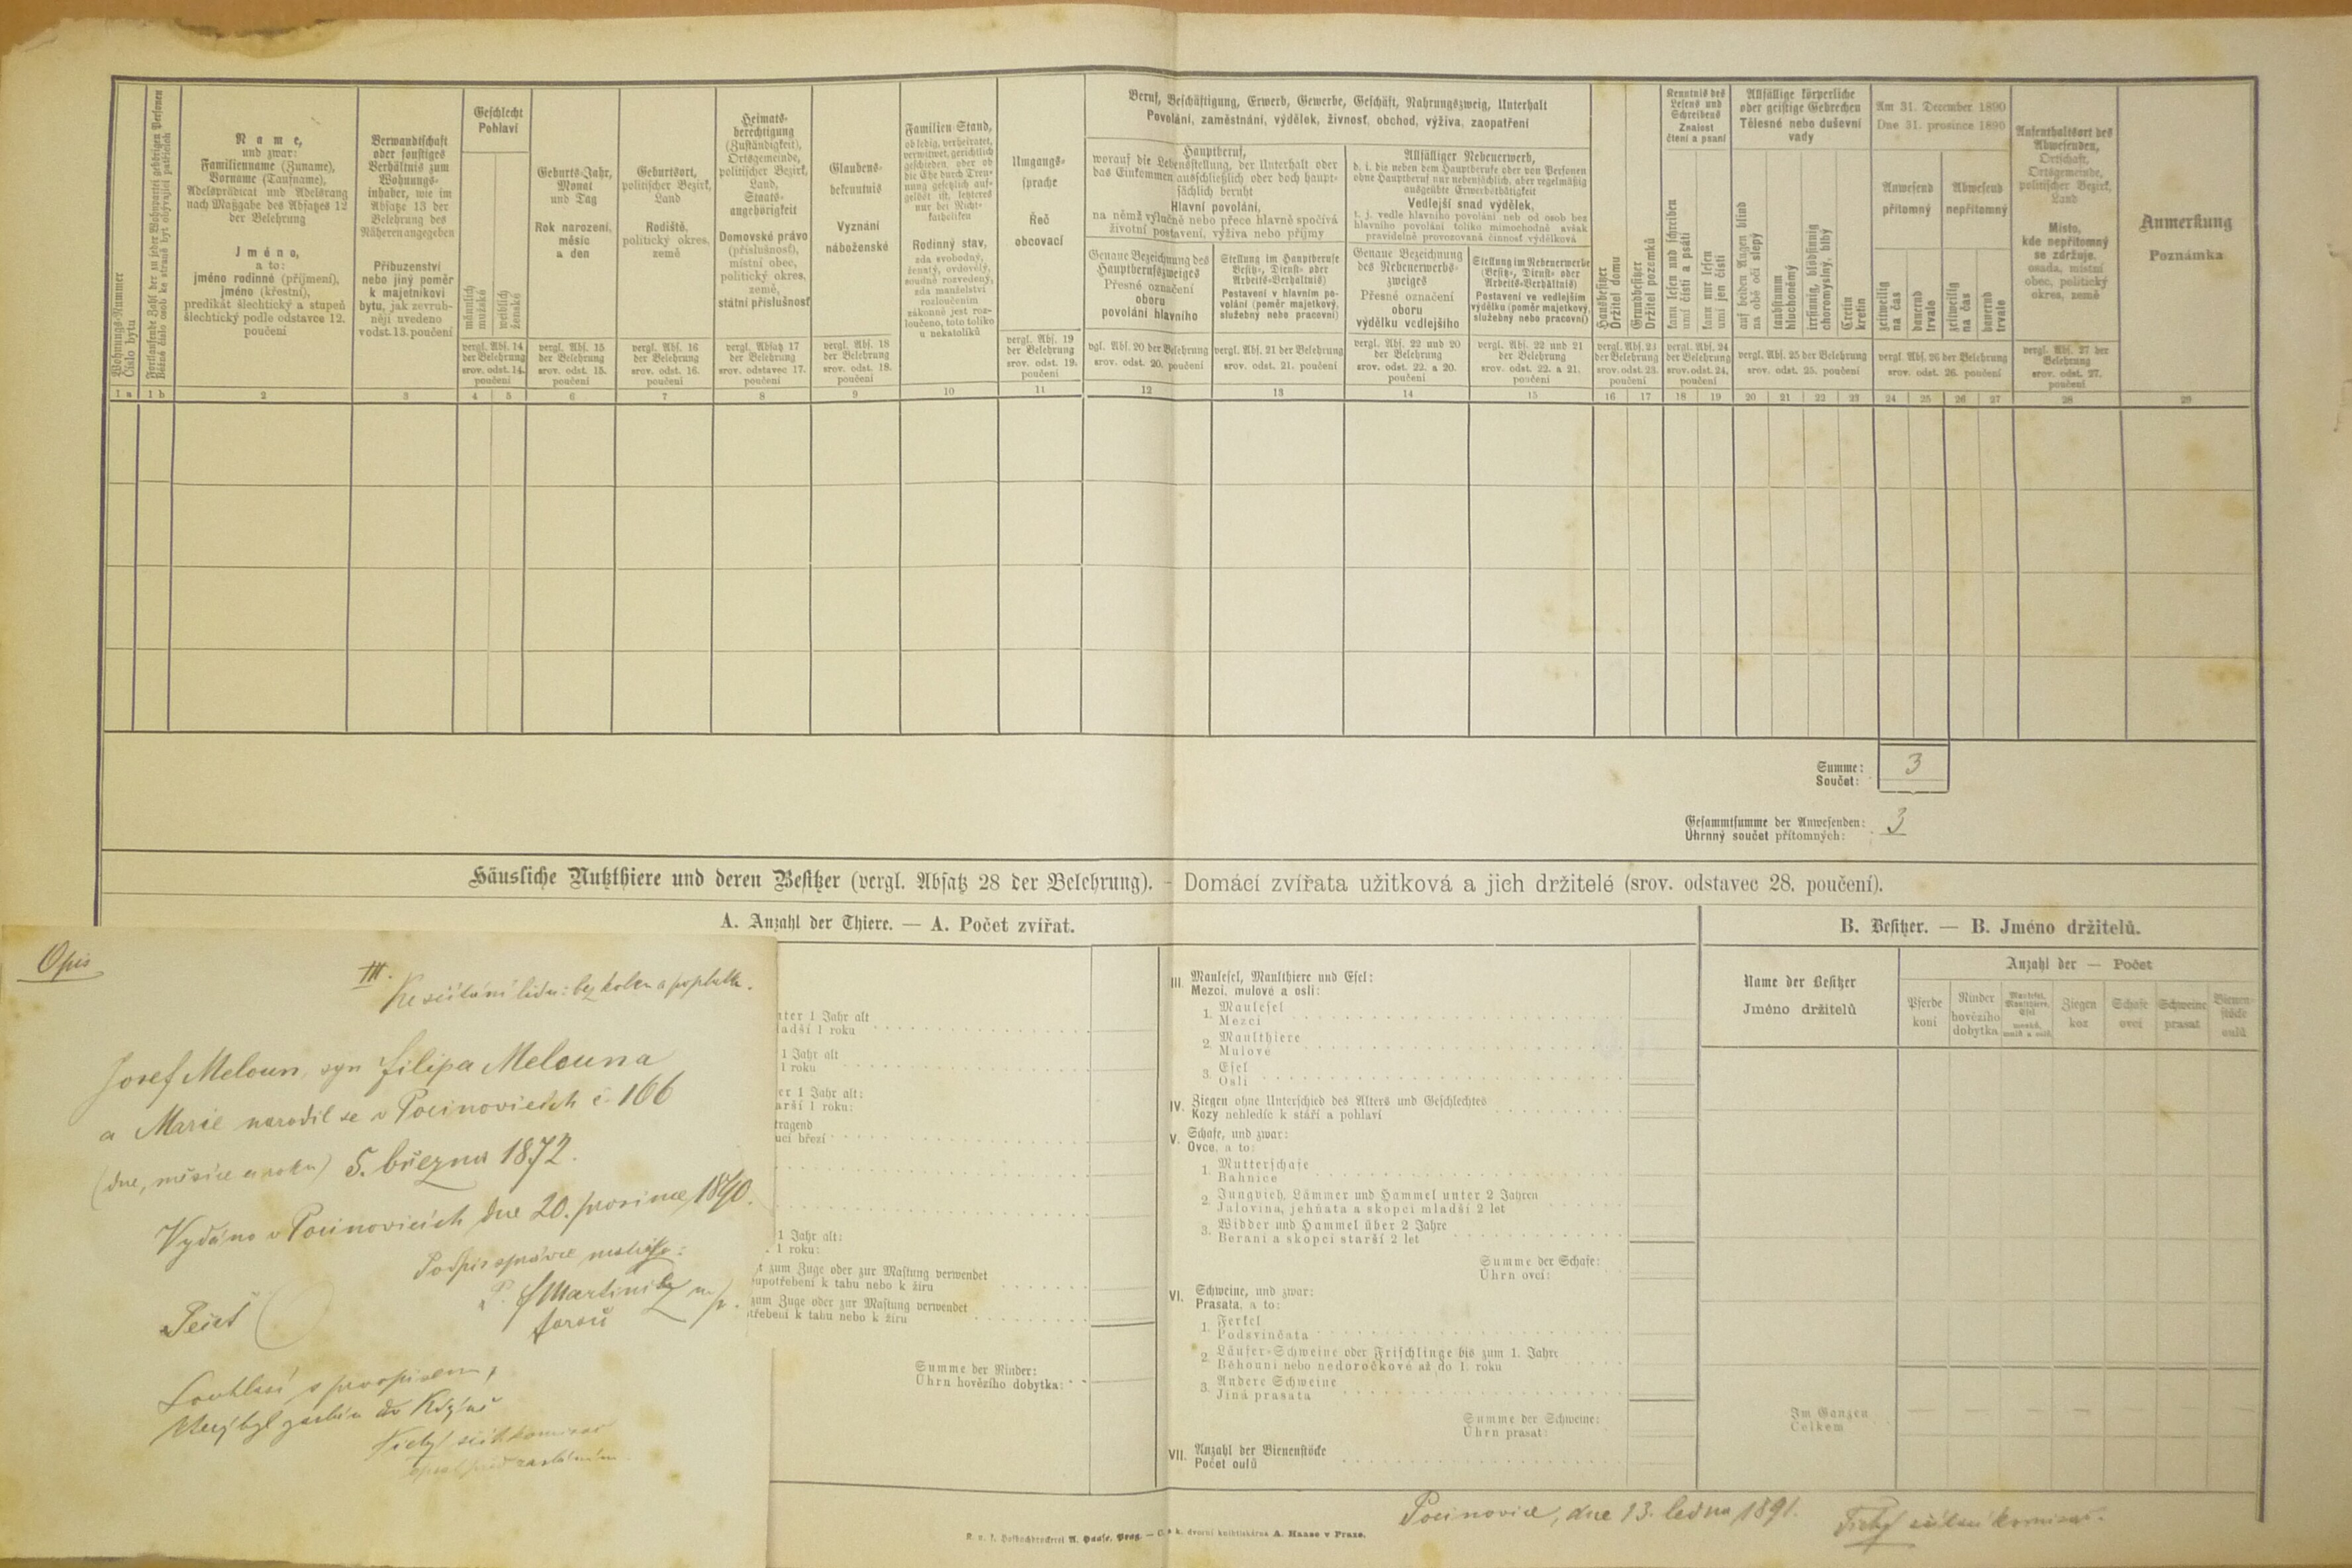 Wohnungs-Nummer
Číslo bytu
Fortlaufende Zahl der zu jeder Wohnpartei gehörigen Personen
Name,
und zwar:
Familienname (Zuname),
Vorname (Taufname),
Adelsprädicat und Adelsrang
nach Maßgabe des Absatzes 12
der Belehrung
Jméno,
a to:
jméno rodinné (příjmení),
jméno (křestní),
predikát šlechtický a stupeň
šlechtický podle odstavce 12.
poučení
Verwandtschaft
oder sonstiges
Verhältnis zum
Wohnungs-
inhaber, wie im
Absatze 13 der
Belehrung des
Näheren angegeben
Příbuzenství
nebo jiný poměr
k majetníkovi
bytu, jak zevrub-
něji uvedeno
v odst. 13. poučení
Geschlecht
Pohlaví
männlich
mužské
weiblich
ženské
vergl. Abs. 14
der Belehrung
srov. odst. 14.
poučení
Geburts-Jahr,
Monat
und Tag
Rok narození,
měsíc
a den
vergl. Abs. 15
der Belehrung
srov. odst. 15.
poučení
Geburtsort,
politischer Bezirk,
Land
Rodiště,
politický okres,
země
vergl. Abs. 16
der Belehrung
srov. odst. 16.
poučení
Heimats-
berechtigung
(Zuständigkeit),
Ortsgemeinde,
politischer Bezirk,
Land,
Staats-
angehörigkeit
Domovské právo
(příslušnosť),
místní obec,
politický okres,
země,
státní příslušnosť
vergl. Absatz 17
der Belehrung
srov. odstavec 17.
poučení
Glaubens-
bekenntnis
Vyznání
náboženské
vergl. Abs. 18
der Belehrung
srov. odst. 18.
poučení
Familien Stand,
ob ledig, verheiratet,
verwitwet, gerichtlich
geschieden, oder ob
die Ehe durch Tren-
nung gesetzlich auf-
gelöst ist, letzteres
nur bei Nicht-
katholiken
Rodinný stav,
zda svobodný,
ženatý, ovdovělý,
soudně rozvedený,
zda manželství
rozloučením
zákonně jest roz-
loučeno, toto toliko
u nekatolíků
Umgangs-
sprache
Řeč
obcovací
vergl. Abs. 19
der Belehrung
srov. odst. 19.
poučení
Beruf, Beschäftigung, Erwerb, Gewerbe, Geschäft, Nahrungszweig, Unterhalt
Povolání, zaměstnání, výdělek, živnosť, obchod, výživa, zaopatření
Hauptberuf,
worauf die Lebensstellung, der Unterhalt oder
das Einkommen ausschließlich oder doch haupt-
sächlich beruht
Hlavní povolání,
na němž výlučně nebo přece hlavně spočívá
životní postavení, výživa nebo příjmy
Genaue Bezeichnung des
Hauptberufszweiges
Přesné označení
oboru
povolání hlavního
vgl. Abs. 20 der Belehrung
srov. odst. 20. poučení
Stellung im Hauptberufe
Besitz-, Dienst- oder
Arbeits-Verhältnis)
Postavení v hlavním po-
volání (poměr majetkový,
služebný nebo pracovní)
vergl. Abs. 21 der Belehrung
srov. odst. 21. poučení
Allfälliger Nebenerwerb,
d. i. die neben dem Hauptberufe oder von Personen
ohne Hauptberuf nur nebensächlich, aber regelmäßig
ausgeübte Erwerbsthätigkeit
Vedlejší snad výdělek,
t. j. vedle hlavního povolání neb od osob bez
hlavního povolání toliko mimochodně avšak
pravidelně provozovaná činnosť výdělková
Genaue Bezeichnung
des Nebenerwerbs-
zweiges
Přesné označení
oboru
výdělku vedlejšího
vergl. Abs. 22 und 20
der Belehrung
srov. odst. 22. a 20.
poučení
Stellung im Nebenerwerbe
(Besitz-, Dienst- oder
Arbeits-Verhältnis)
Postavení ve vedlejším
výdělku (poměr majetkový,
služebný nebo pracovní)
vergl. Abs. 22 und 21
der Belehrung
srov. odst. 22. a 21.
poučení
Hausbesitzer
Držitel domu
Grundbesitzer
Držitel pozemků
vergl. Abs. 23
der Belehrung
srov. odst. 23.
poučení
Kenntnis des
Lesens und
Schreibens
Znalost
čtení a psaní
kann lesen und schreiben
umí čísti a psáti
kann nur lesen
umí jen čísti
vergl. Abs. 24
der Belehrung
srov. odst. 24.
poučení
Allfällige körperliche
oder geistige Gebrechen
Tělesné nebo duševní
vady
auf beiden Augen blind
na obě oči slepý
taubstumm
hluchoněmý
irrsinnig, blödsinnig
choromyslný, blbý
Cretin
kretin
vergl. Abs. 25 der Belehrung
srov. odst. 25. poučení
Am 31. December 1890
Dne 31. prosince 1890
Anwesend
přítomný
Abwesend
nepřítomný
zeitweilig
na čas
dauernd
trvale
zeitweilig
na čas
dauernd
trvale
vergl. Abs. 26 der Belehrung
srov. odst. 26. poučení
Aufenthaltsort des
Abwesenden,
Ortschaft,
Ortsgemeinde,
politischer Bezirk,
Land
Místo,
kde nepřítomný
se zdržuje,
osada, místní
obec, politický
okres, země
vergl. Abs. 27 der
Belehrung
srov. odst. 27.
poučení
Anmerkung
Poznámka
1 a 1 b 2 3 4 5 6 7 8 9 10 11 12 13 14 15 16 17 18 19 20 21 22 23 24 25 26 27 28 29
Summe: 3
Součet:
Gesammtsumme der Anwesenden: 3
Úhrnný součet přítomných:
Häusliche Nutzthiere und deren Besitzer (vergl. Absatz 28 der Belehrung). – Domácí zvířata užitková a jich držitelé (srov. odstavec 28. poučení).
A. Anzahl der Thiere. — A. Počet zvířat.
B. Besitzer. — B. Jméno držitelů.
Opis
III.
Ke sčítání lidu: bez kolku a poplatku.
Josef Meloun, syn Filipa Melouna
a Marie narodil se v Pocinovicích č. 166
(dne, měsíce a roku) 5. března 1872.
Vydáno v Pocinovicích dne 20. prosince 1890.
Podpis správce matriky:
P. J Martinic m/p.
farář
Pečeť
Souhlasí s prvopisem,
do Kdyně
nter 1 Jahr alt
ladší 1 roku
1 Jahr alt
1 roku
er 1 Jahr alt:
arší 1 roku:
tragend
ucí březí
1 Jahr alt:
1 roku:
t zum Zuge oder zur Mastung verwendet
upotřebení k tahu nebo k žíru
zum Zuge oder zur Mastung verwendet
třebení k tahu nebo k žíru
Summe der Rinder:
Úhrn hovězího dobytka:
III. Maulesel, Maulthiere und Esel:
Mezci, mulové a osli:
1. Maulesel
Mezci
2. Maulthiere
Mulové
3. Esel
Osli
IV. Ziegen ohne Unterschied des Alters und Geschlechtes
Kozy nehledíc k stáří a pohlaví
V. Schafe, und zwar:
Ovce, a to:
1. Mutterschafe
Bahnice
2. Jungvieh, Lämmer und Hammel unter 2 Jahren
Jalovina, jehňata a skopci mladší 2 let
3. Widder und Hammel über 2 Jahre
Berani a skopci starší 2 let
Summe der Schafe:
Úhrn ovcí:
VI. Schweine, und zwar:
Prasata, a to:
1. Ferkel
Podsvinčata
2. Läufer-Schweine oder Frischlinge bis zum 1. Jahre
Běhouni nebo nedoročkové až do 1. roku
3. Andere Schweine
Jiná prasata
Summe der Schweine:
Úhrn prasat:
VII. Anzahl der Bienenstöcke
Počet oulů
Name der Besitzer
Jméno držitelů
Anzahl der — Počet
Pferde
koní
Rinder
hovězího
dobytka
Maulesel,
Maulthiere,
Esel
Ziegen
koz
Schafe
ovcí
Schweine
prasat
Bienen-
stöcke
oulů
Im Ganzen
Celkem
Pocinovice, dne 13. ledna 1891. Tichý sčítací komisař.
K. u. k. Hofbuchdruckerei A. Haase, Prag. — C. a k. dvorní knihtiskárna A. Haase v Praze.